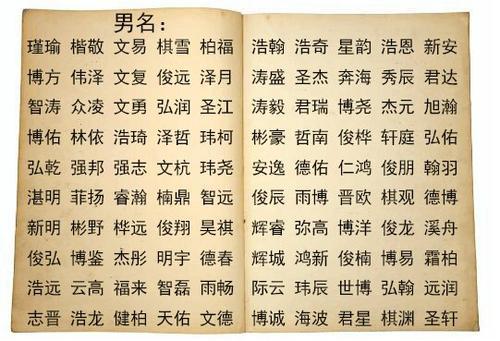 男名：
瑾瑜 楷敬 文易 棋雪 柏福 浩翰 浩奇 星韵 浩恩 新安
博方 伟泽 文复 俊远 泽月 涛盛 圣杰 奔海 秀辰 君达
智涛 众凌 文勇 弘润 圣江 涛毅 君瑞 博尧 杰元 旭瀚
博佑 林依 浩琦 泽哲 玮柯 彬豪 哲南 俊桦 轩庭 弘佑
弘乾 强邦 强志 文杭 玮尧 安逸 德佑 仁鸿 俊朋 翰羽
湛明 菲扬 睿瀚 楠鼎 智远 俊辰 雨博 晋欧 棋观 德博
新明 彬野 桦远 俊翔 昊祺 辉睿 弥高 博洋 俊龙 溪舟
俊弘 博鉴 杰彤 明宇 德春 辉城 鸿新 俊楠 博易 霜柏
浩远 云高 福来 智磊 雨畅 际云 玮辰 世博 弘翰 远润
志晋 浩龙 健柏 天佑 文德 博诚 海波 君星 棋渊 圣轩